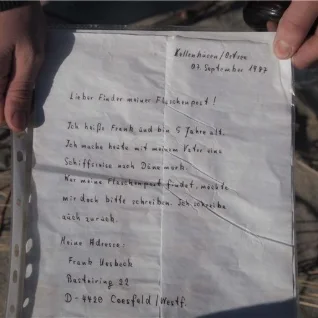 Kellenhusen/Ostsee
07. September 1987
Lieber Finder meiner Flaschenpost!
Ich heiße Frank und bin 5 Jahre alt.
Ich mache heute mit meinem Vater eine
Schiffsreise nach Dänemark.
Wer meine Flaschenpost findet, möchte
mir doch bitte schreiben. Ich schreibe
auch zurück.
Meine Adresse:
Frank
22
D-4420 Coesfeld/Westf.